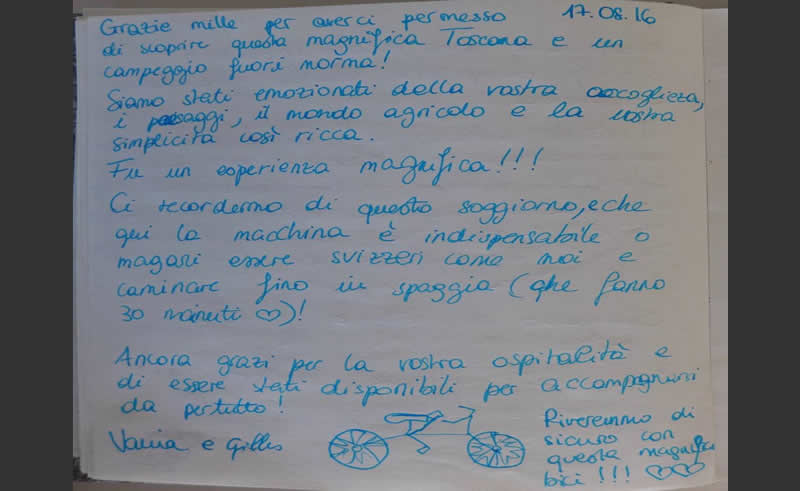 Grazie mille per averci permesso 17.08.16
di scoprire questa magnifica Toscana e un
campeggio fuori norma!
Siamo stati emozionati della vostra accoglieza,
i paesaggi, il mondo agricolo e la vostra
simplicità così ricca.
Fu un esperienza magnifica!!!
Ci recordermo di questo soggiorno, e che
qui la macchina è indispensabile o
magari essere svizzeri come noi e
caminare fino in spaggia (che fanno
30 minuti ♡)!
Ancora grazi per la vostra ospitalità e
di essere stati disponibili per accompagnarsi
da pertutto!
Vania e Gilles
Riveremmo di
sicuro con
questa magnifica
bici!!! ♡♡